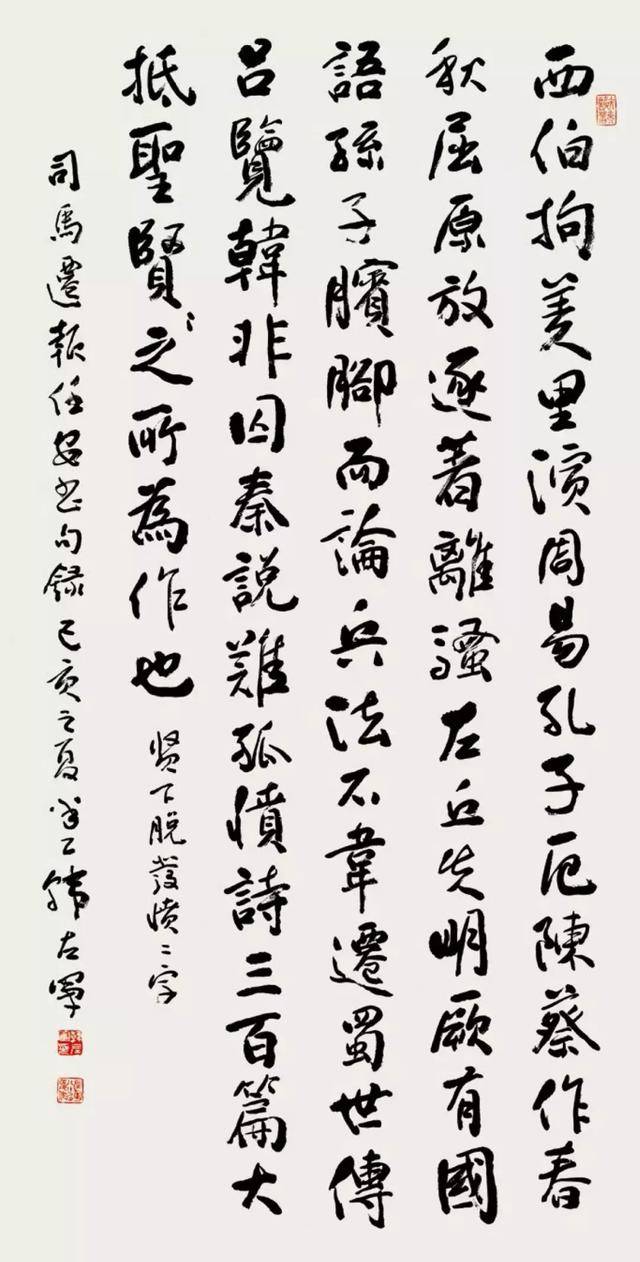 西伯拘羑里演周易孔子厄陳蔡作春
秋屈原放逐著離騷左丘失明厥有國
語孫子臏腳而論兵法不韋遷蜀世傳
呂覽韓非囚秦説難孤憤詩三百篇大
抵聖賢之所為作也
贤下脱發愤二字
司馬遷報任安书句録己亥之夏韓左軍